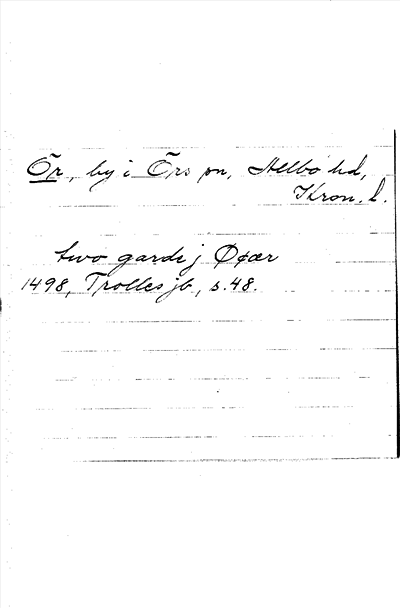 Ör, by i Örs sn, Allbo hd,
Kron. l.
two garde j Øfær
1498, Trolles jb, s. 48.